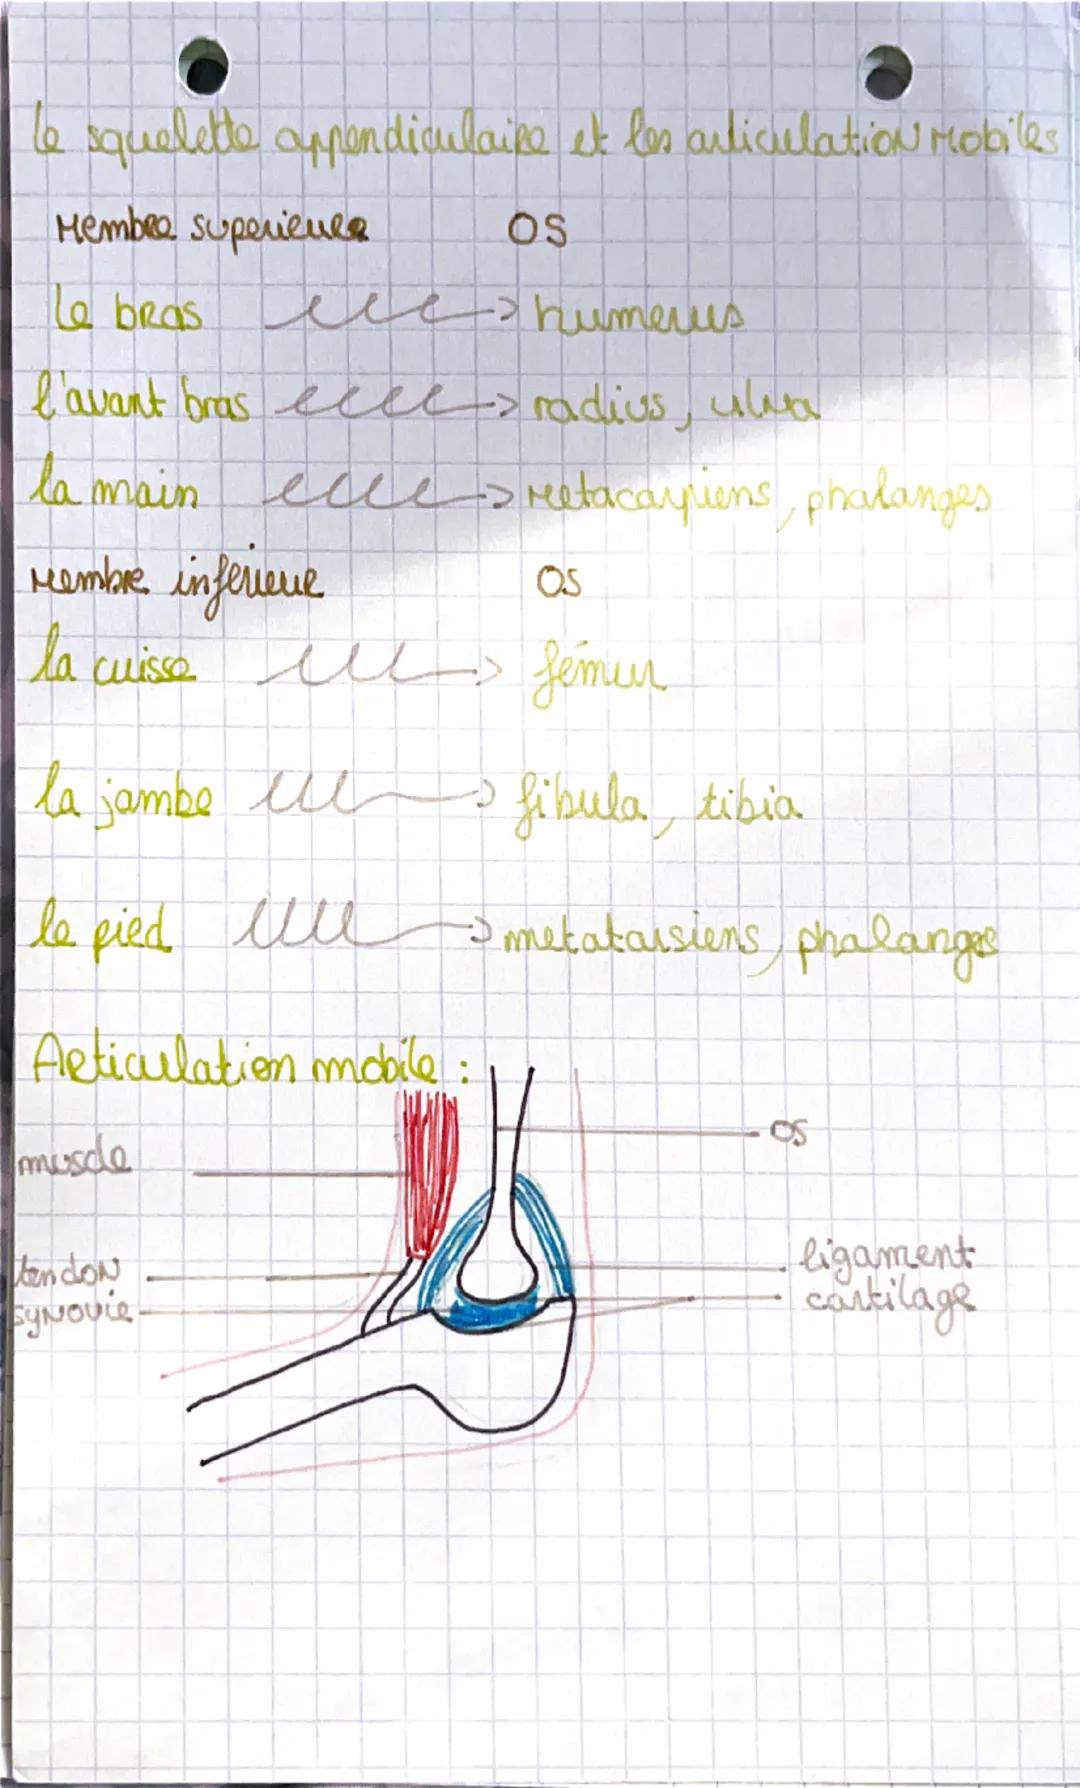 le squelette appendiculaire et les articulation mobiles
Membre superieure OS
le bras humerus
l'avant bras radius, ulna
la main metacarpiens, phalanges
Membre inférieur OS
la cuisse fémur
la jambe fibula, tibia
le pied metatarsiens, phalanges
Articulation mobile :
os
muscle
ligament
tendon
cartilage
synovie